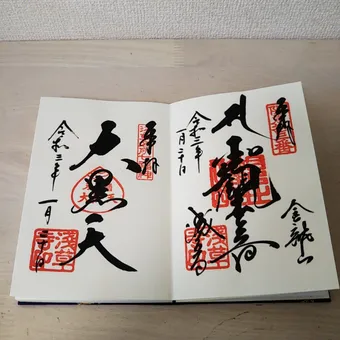 奉拝
金龍山
聖観世音
浅草寺
令和三年
一月二十日
奉拝
大黒天
令和三年
一月二十日